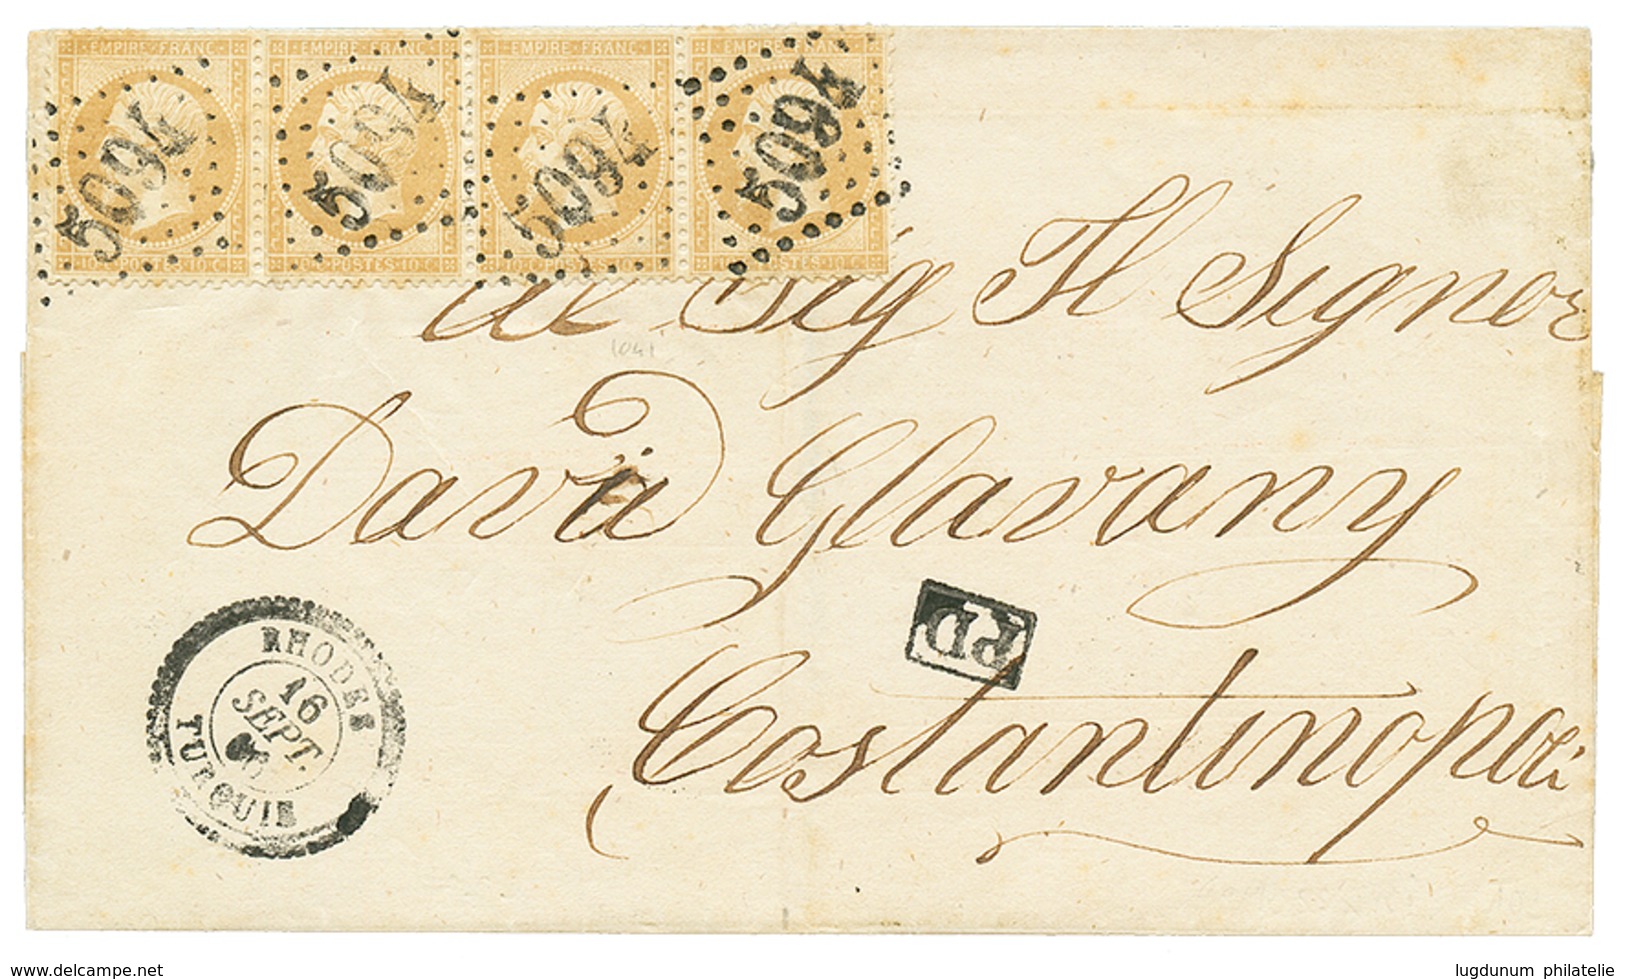 EMPIRE FRANC EMPIRE FRANC EMPIRE FRANC EMPIRE FRANC
5094 5094 5094 5094
10 C POSTES 10 C 10 C POSTES 10 C 10 C POSTES 10 C POSTES 10 C
al Sig Il Signor
David Glavany
PD
Costantinopoli
RHODES
16
SEPT.
TURQUIE
www.delcampe.net
lugdunum philatelie